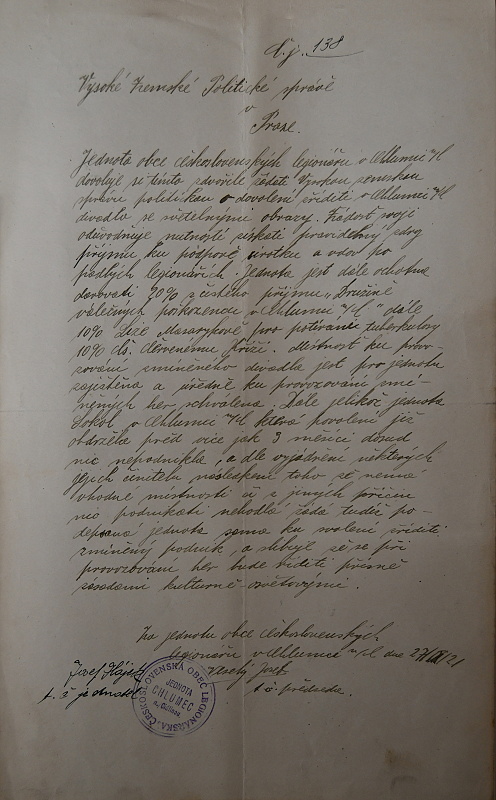 Č.j. 138
Vysoké Zemské Politické správě
v
Praze.
Jednota obce československých legionářů v Chlumci n/C
dovoluje si tímto zdvořile žádati Vysokou zemskou
správu politickou o dovolení zříditi v Chlumci n/C
divadlo se světelnými obrazy. Žádost svoji
odůvodňuje nutností získati pravidelný zdroj
příjmu ku podpoře sirotků a vdov po
padlých legionářích. Jednota jest dále ochotna
darovati 20% z čistého příjmu „Družině
válečných poškozenců v Chlumci n/C" dále
10% Lize Masarykově pro potírání tuberkulosy
10% čs. Červenému kříži. Místnost ku provo-
zování zmíněného divadla jest pro jednotu
zajištěna a úředně ku provozování zmí-
něných her schválena. Dále jelikož jednota
Sokol v Chlumci n/C která povolení již
obdržela před více jak 3 měsíci dosud
nic nepodnikla, a dle vyjádření některých
jejich činitelů následkem toho že nemá
vhodné místnosti či z jiných příčin
nic podnikati nehodlá žádá tudíž po-
depsaná jednota sama ku svolení zříditi
zmíněný podnik, a slibuje že se při
provozování her bude říditi přímě
zásadami kulturně-osvětovými.
Za jednotu obce československých
legionářů v Chlumci n/C dne
Josef Hájek Veselý Josef
t. č. jednatel t. č. předseda.
ČESKOSLOVENSKÁ OBEC LEGIONÁŘSKÁ
JEDNOTA
CHLUMEC
n. Cidlinou